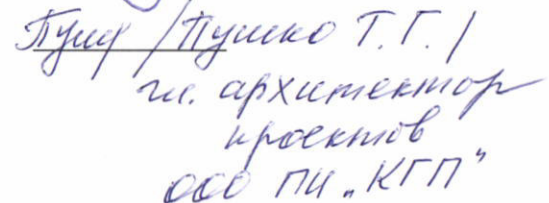 /Пушко Т.Г./
гл. архитектор
проектов
ООО ПИ „КГП"